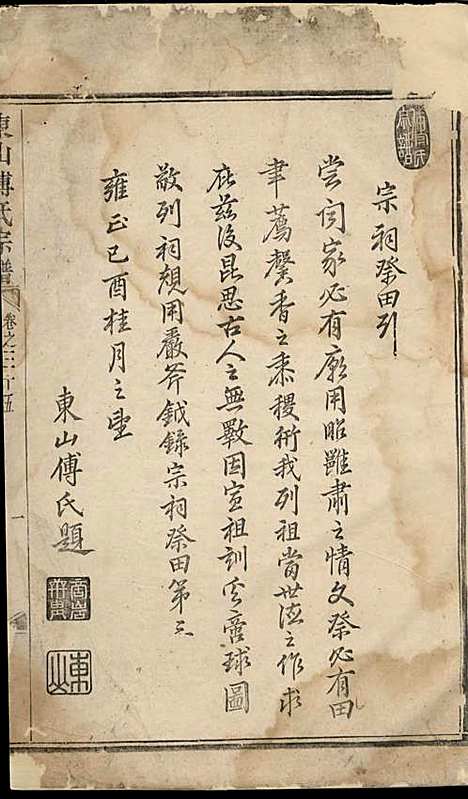 宗祠祭田引
嘗聞家必有廟用昭雝肅之情文祭必有田
聿薦馨香之黍稷術我列祖當世德之作求
庇茲後昆思古人之無斁因宣祖訓天球圖
敬列祠規用嚴斧鉞錄宗祠祭田第三
雍正己酉桂月之望
東山傅氏題
東山
東山傅氏宗譜
卷之三百五
一